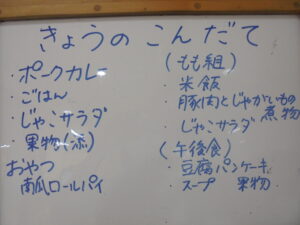 きょうのこんだて
・ポークカレー
・ごはん
・じゃこサラダ
・果物(赤)
おやつ
南瓜ロールパイ
(もも組)
・米飯
・豚肉とじゃがいもの
煮物
じゃこサラダ
(午後食)
・豆腐パンケーキ
・スープ 果物